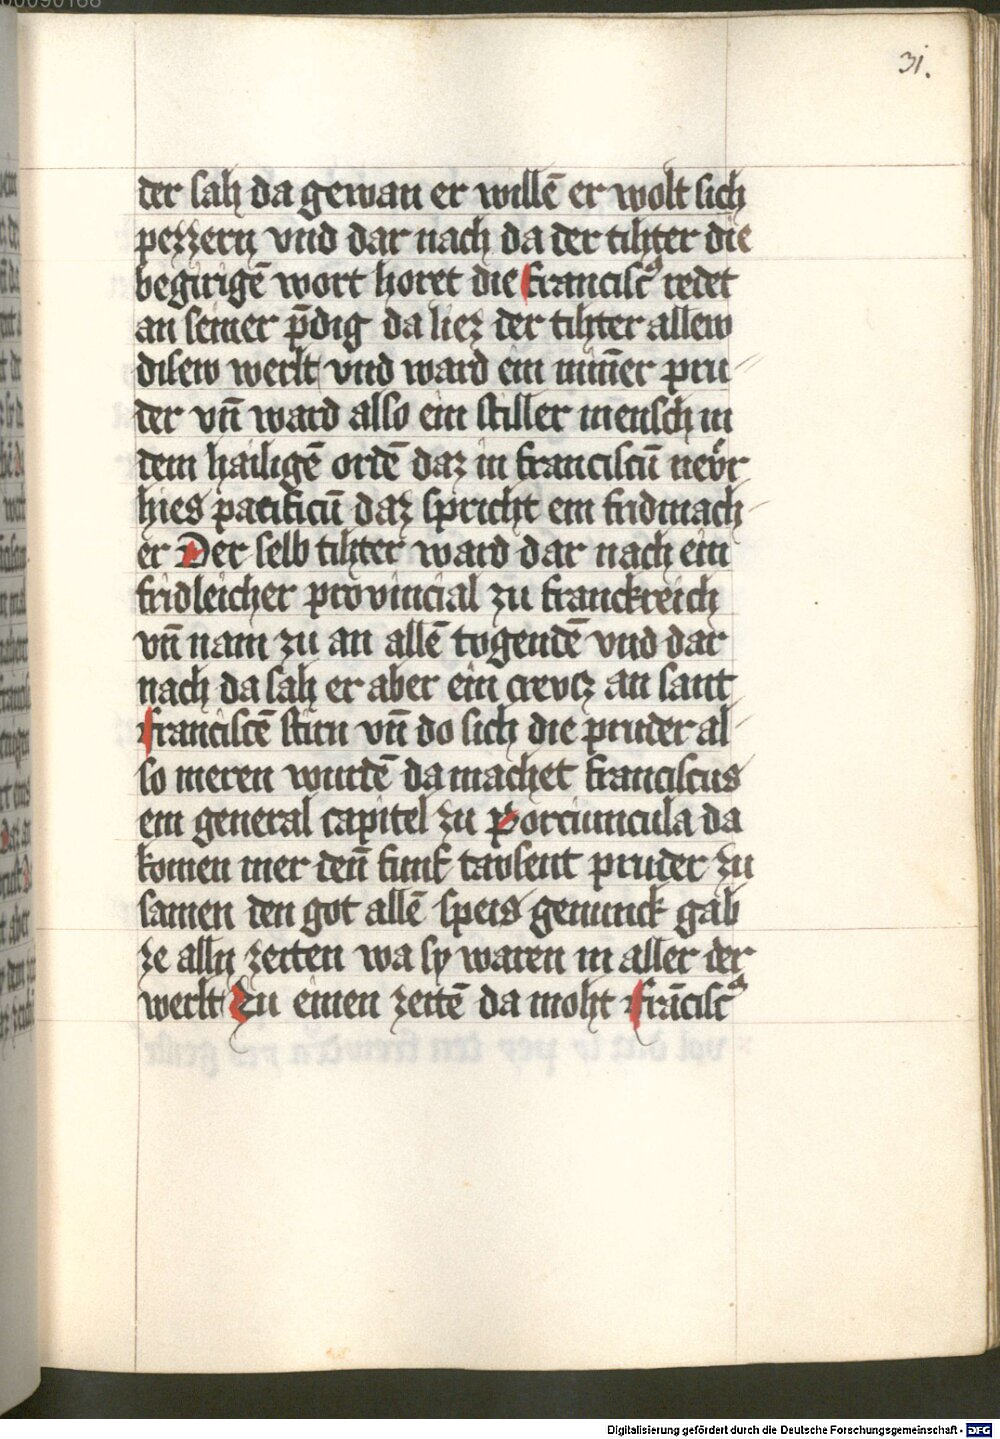 31.
der sah da gewan er willē er wolt sich
pezzern vnd dar nach da der tihter die
begirigē wort horet die franciscꝰ redet
an seiner p̄dig da liez der tihter allew
disew werlt vnd ward ein min̄er pru
der vn̄ ward also ein stiller mensch in
dem hailigē ordē daz in franciscū
hies pacificū daz spricht ein fridmach
er Der selb tihter ward dar nach ein
fridleicher provincial zu franckreich
vn̄ nam zu an allē togendē vnd dar
nach da sah er aber ein crevcz an sant
franciscē stirn vn̄ do sich die pruder al
so meren wurdē da machet franciscus
ein general capitel zu Porciuncula da
komen mer den̄ funf tavsent pruder zu
samen den got allē speis genunck gab
ze alln zeiten wa sy waren in aller der
werlt Zu einen zeitē da moht frāciscꝰ
Digitalisierung gefördert durch die Deutsche Forschungsgemeinschaft - DFG